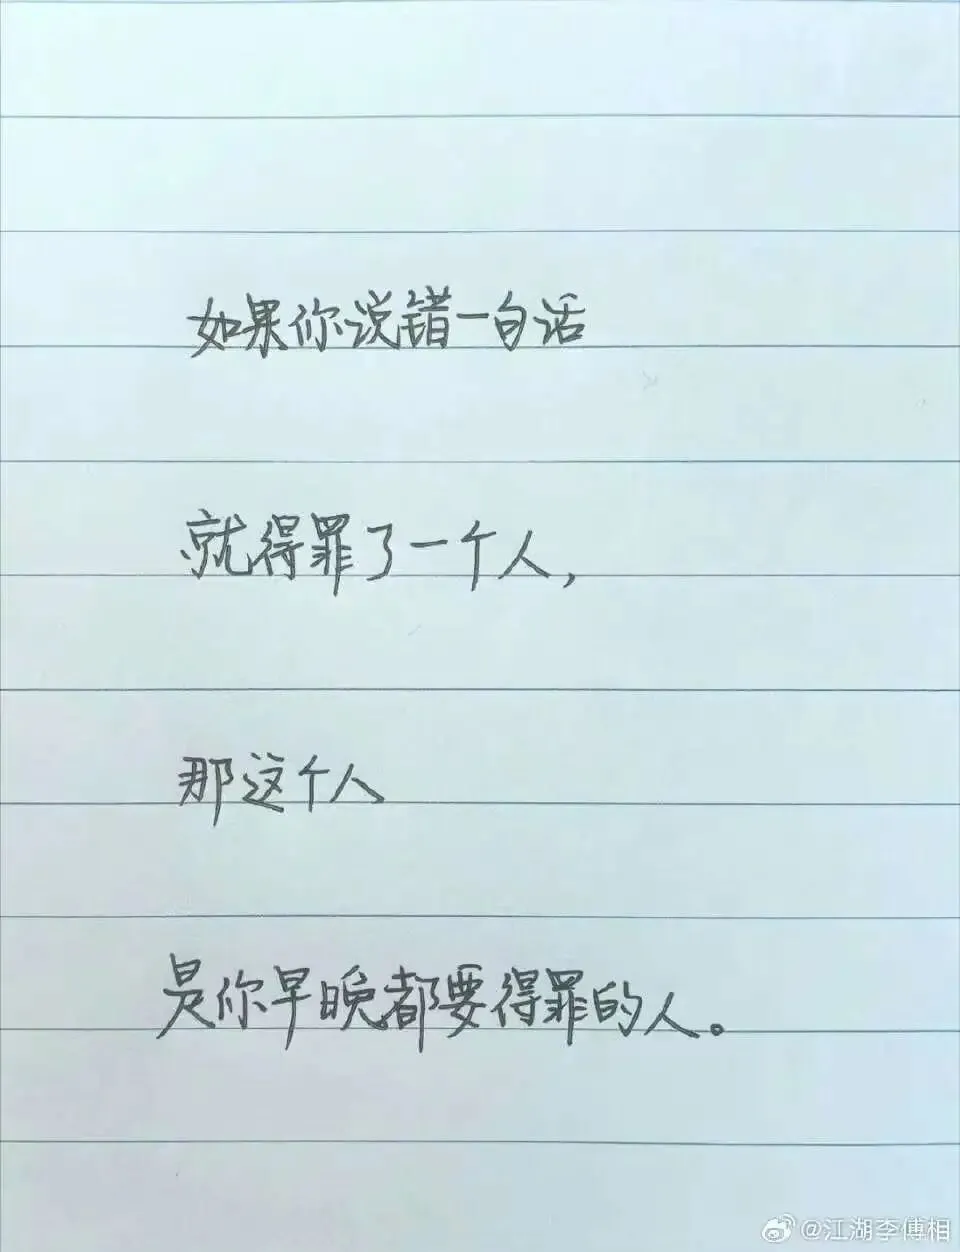 如果你说错一句话
就得罪了一个人,
那这个人
是你早晚都要得罪的人。
@江湖李傅相